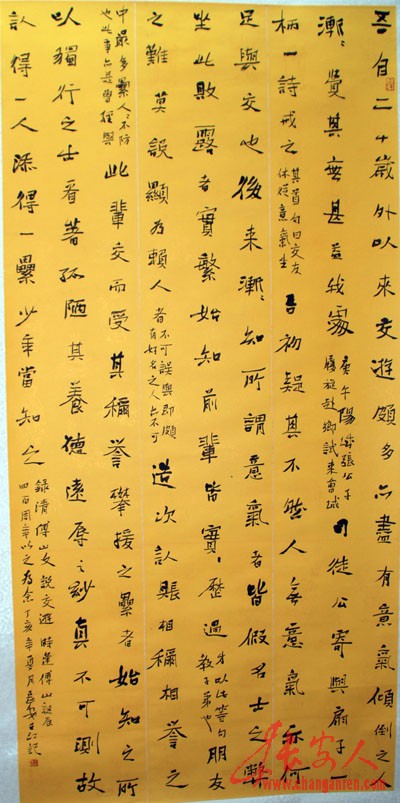 吾自二十歲外以来交遊頗多亦盡有意氣傾倒之
漸〻覺其無甚益我處
庚午陽
張公子
履旋赴鄉試来會城
司徒公寄與扇子一
柄一詩戒之
其首句曰交友
休從意氣生
吾初疑其不然人無意氣亦何
足與交也後来漸〻知所謂意氣者皆假名士之弊
坐此敗露者實繁始知前輩皆實〻歷過
才以此等句
教子弟也
朋友
之難莫說顯為賴人
者不可誤與即頗
有好名之人亦不可
造次認賬相稱相譽之
中最多累人〻不防
也此事亦是曾經與
此輩交而受其稱譽攀援之累者始知之所
以獨行之士看著孤陋其養德遠辱之妙真不可測故
認得一人添得一累少年當知之
錄清傅山文說交遊時逢傅山誕辰
四百周年以之為念丁亥年
月
記
長安人
www.changanren.com